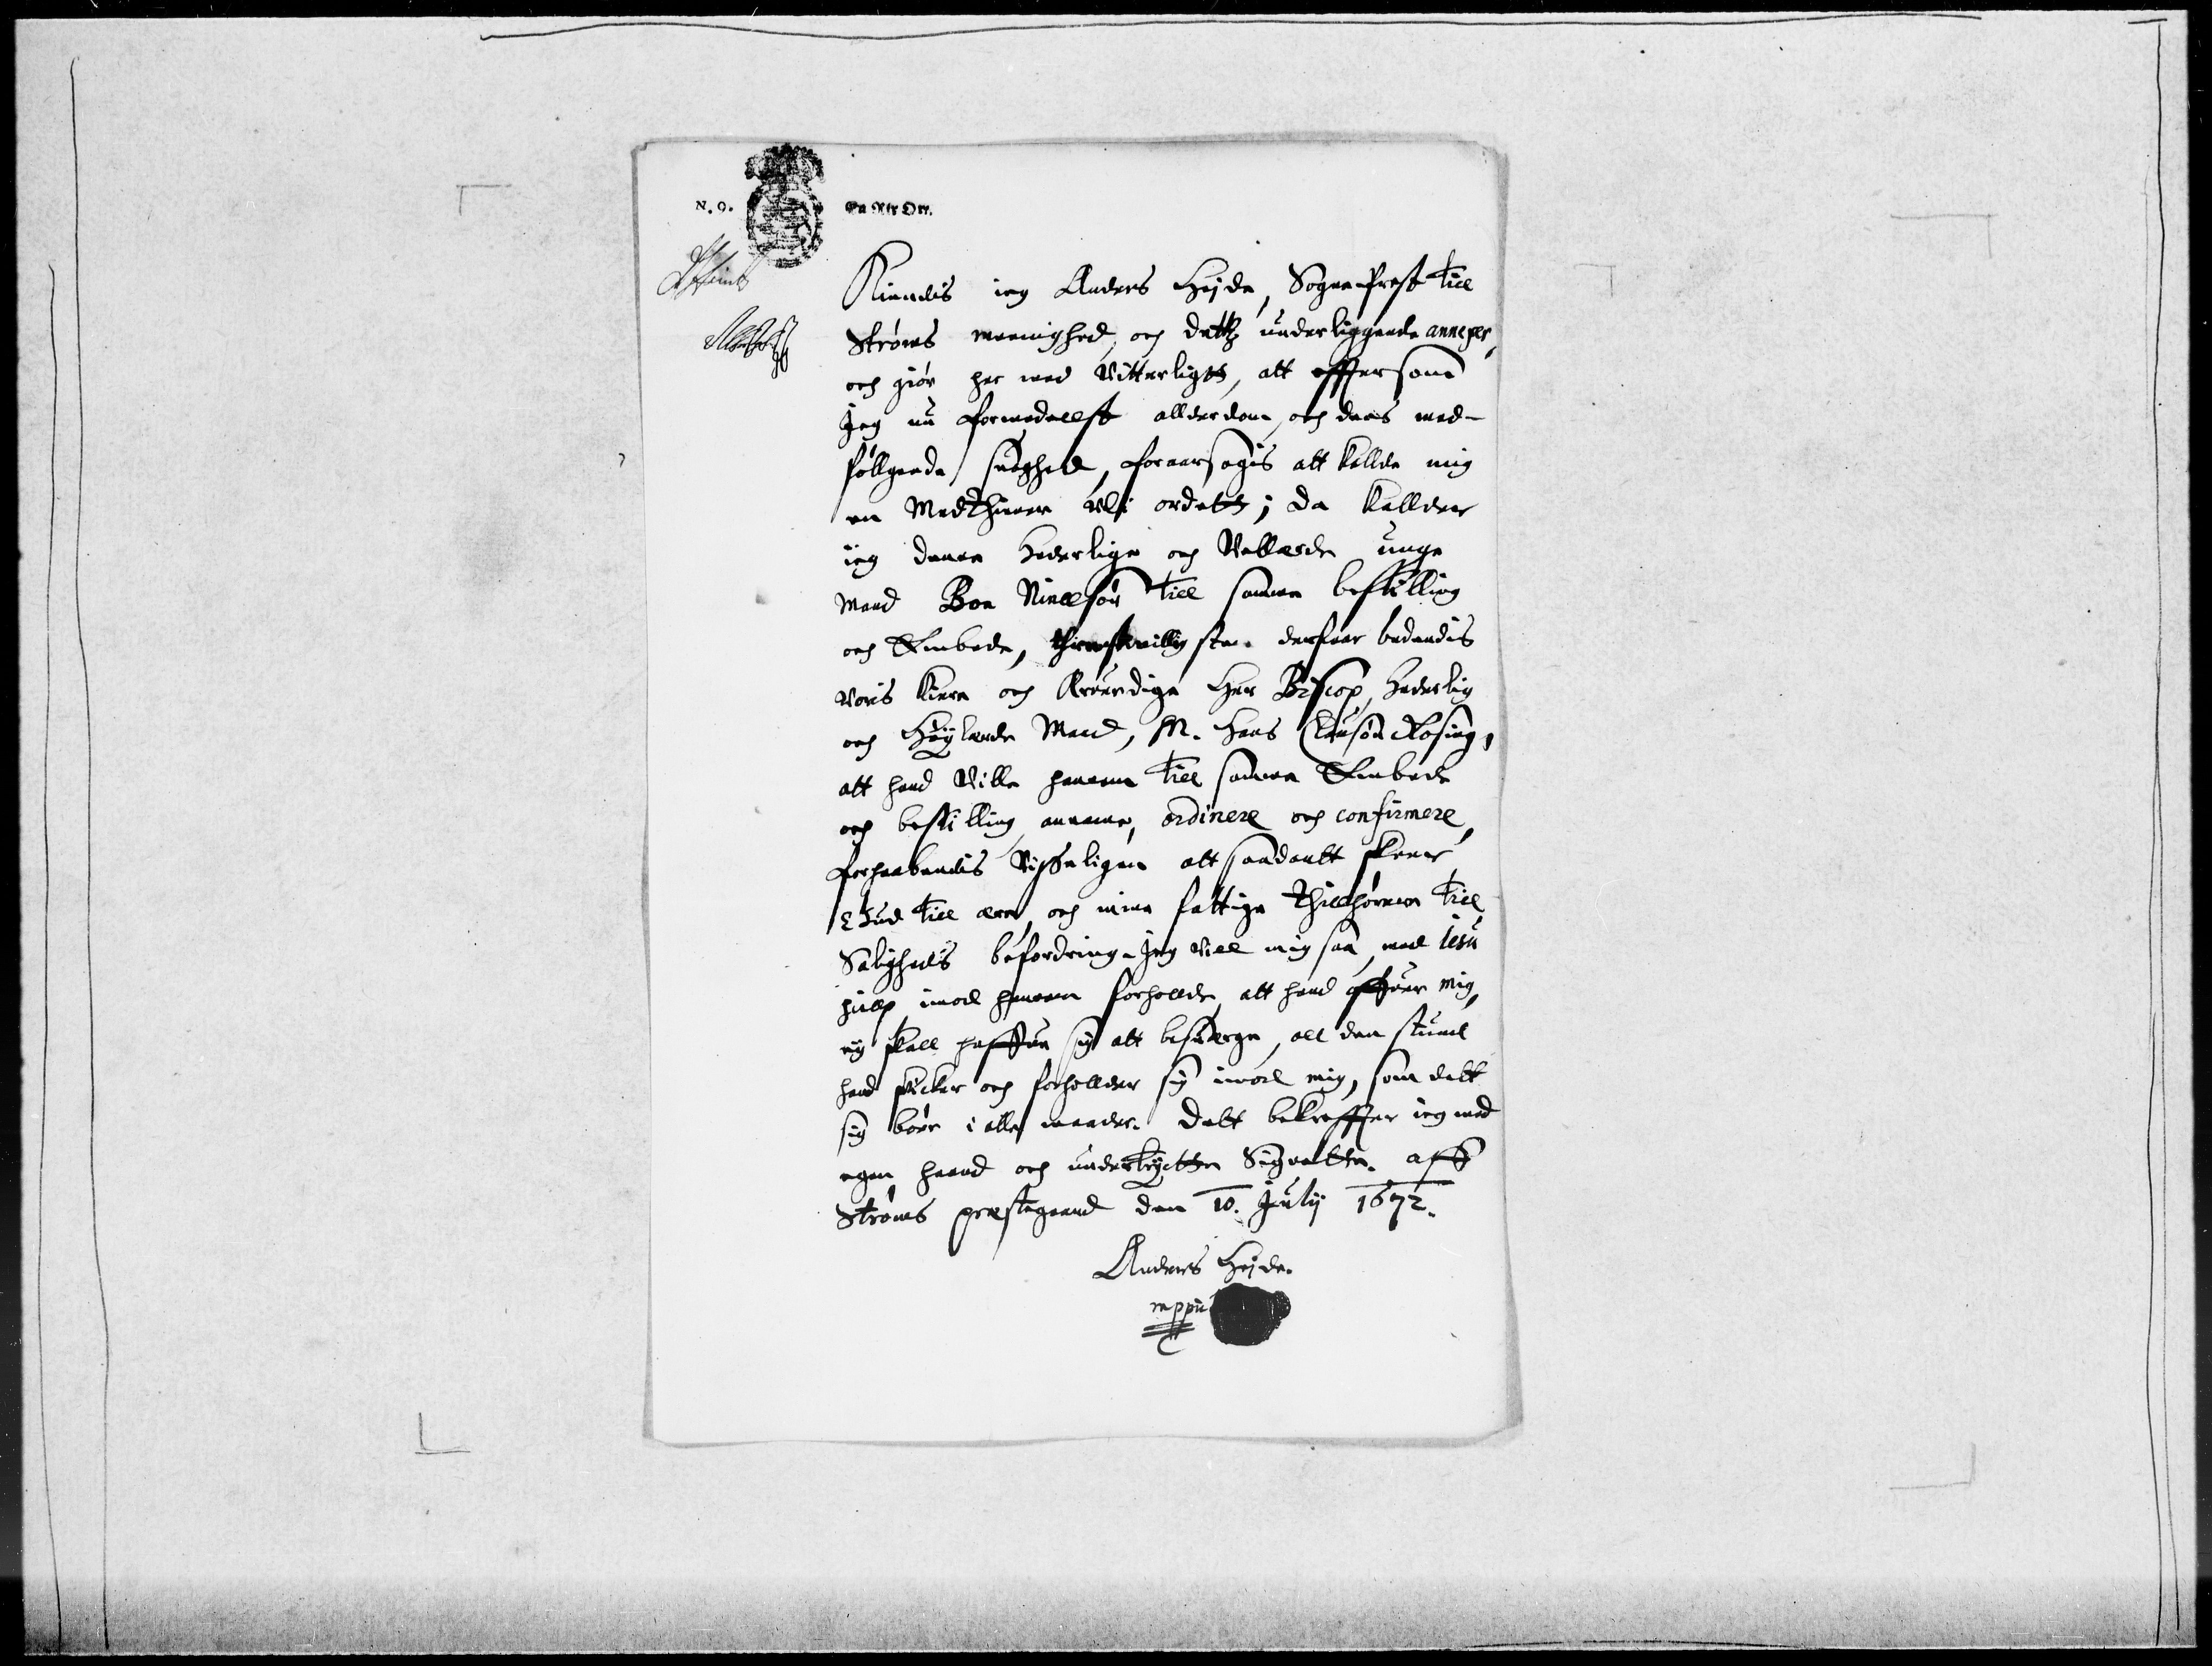 N. 9.
En Rix Ort.
Kiendis ieg Anders Hejde, Sogneprest till
Strøms meenighed, och dettz underliggende annexer,
och giør her med Vitterligtt, att effter som
Jeg nu formedelst allderdom, och dens med-
føllgende suaghed, foraarsagis att kallde mig
en Medthiener udi ordett; da kallder
ieg denne Hederlige och Vellærde unge
Mand Boe Nielsøn till samme bestilling
och Embede, thienstvilligsten derfoor bedendis
voris kiere och Ærverdige Her Biscop, Hederlig
och Høylærde Mand, M. Hans Clausøn Rosing,
att hand Ville hannem till samme Embede
och bestilling anname, ordinere och confirmere,
forhaabendis Visseligen att saadantt skeer
Gud till ære, och mine fattige Thillhørere till
Saligheds befordring. Jeg vill mig saa, med Jesu
hielp imod hannem forhollde, att hand offuer mig,
ey skall haffue sig att besuærge, all den stund
hand skicker och forhollder sig imod mig, som dett
sig bøer i alle maader. Dett bekreffter ieg med
egen haand och undertrøckte Signette. aff
Strøms præstegaard den 10. Julij 1672.
Anders Hejde.
mppii